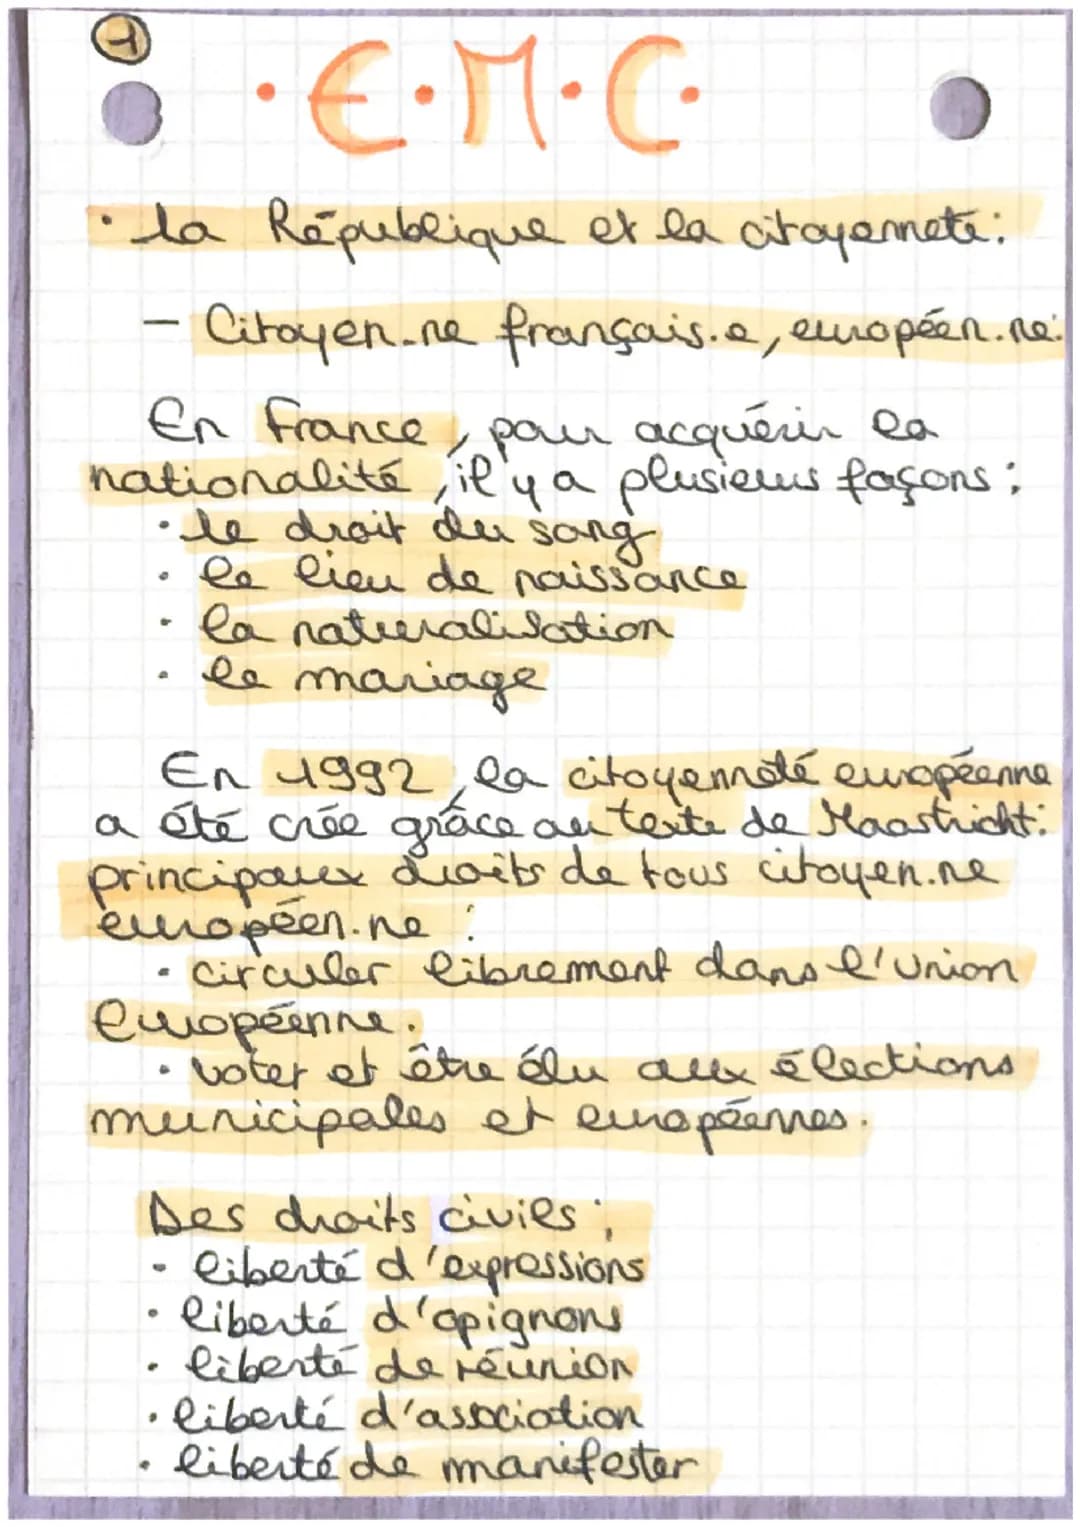 1
· E · M · C ·
· La République et la citoyenneté :
- Citoyen.ne français.e, européen.ne :
En France, pour acquérir la
nationalité, il y a plusieurs façons :
· le droit du sang
· le lieu de naissance
· la naturalisation
· le mariage
En 1992, la citoyenneté européenne
a été crée grâce au texte de Maastricht :
principaux droits de tous citoyen.ne
européen.ne :
· circuler librement dans l'Union
Européenne.
· voter et être élu aux élections
municipales et européennes.
Des droits civils :
· liberté d'expressions
· liberté d'opignons
· liberté de réunion
· liberté d'association
· liberté de manifester